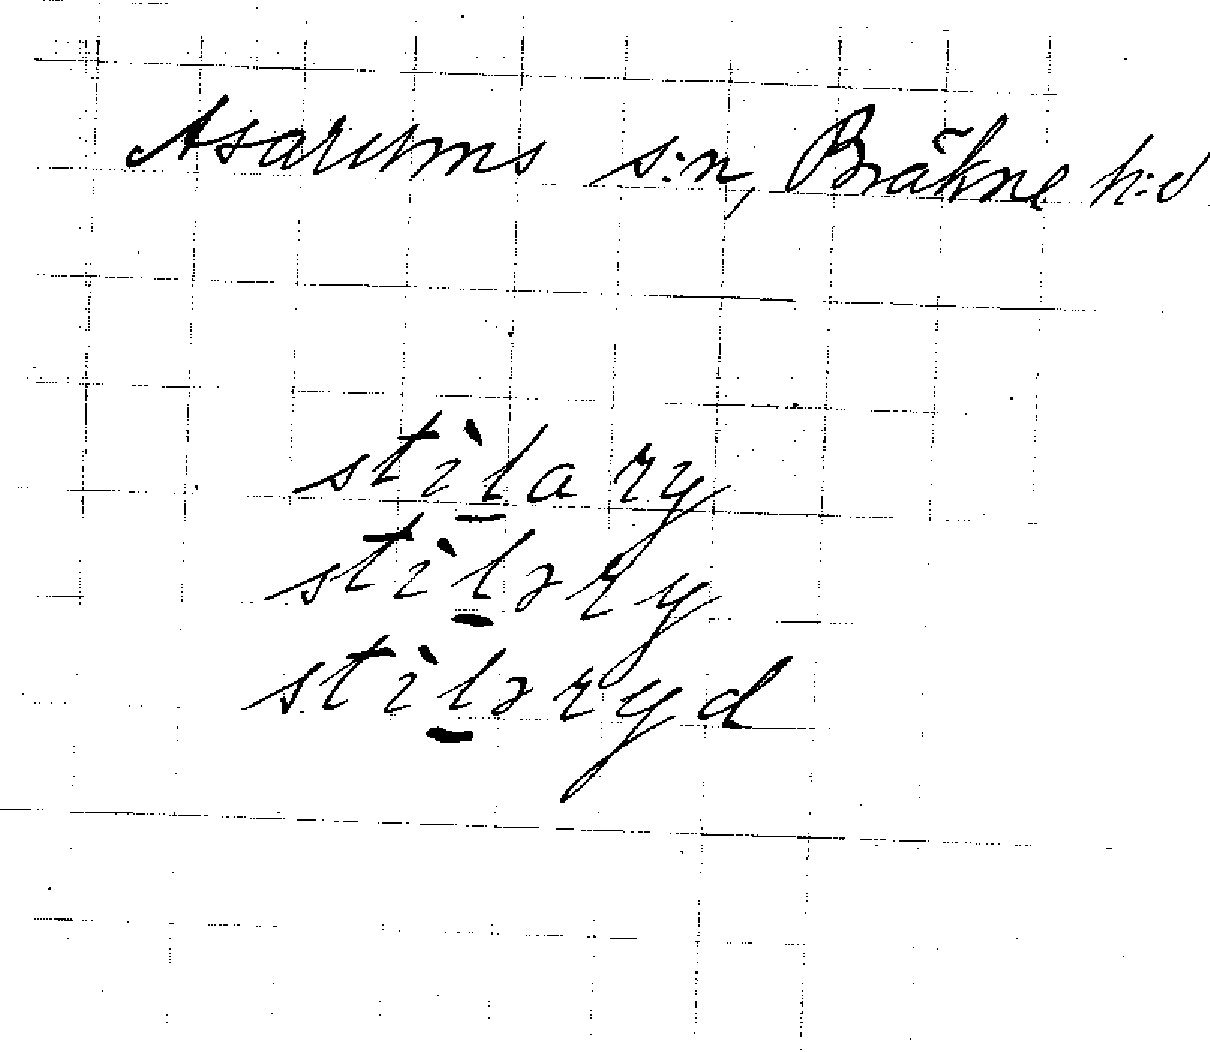 Asarums s:n, Bräkne h:d
stìl̲ary
stìl̲əry
stìl̲əryd